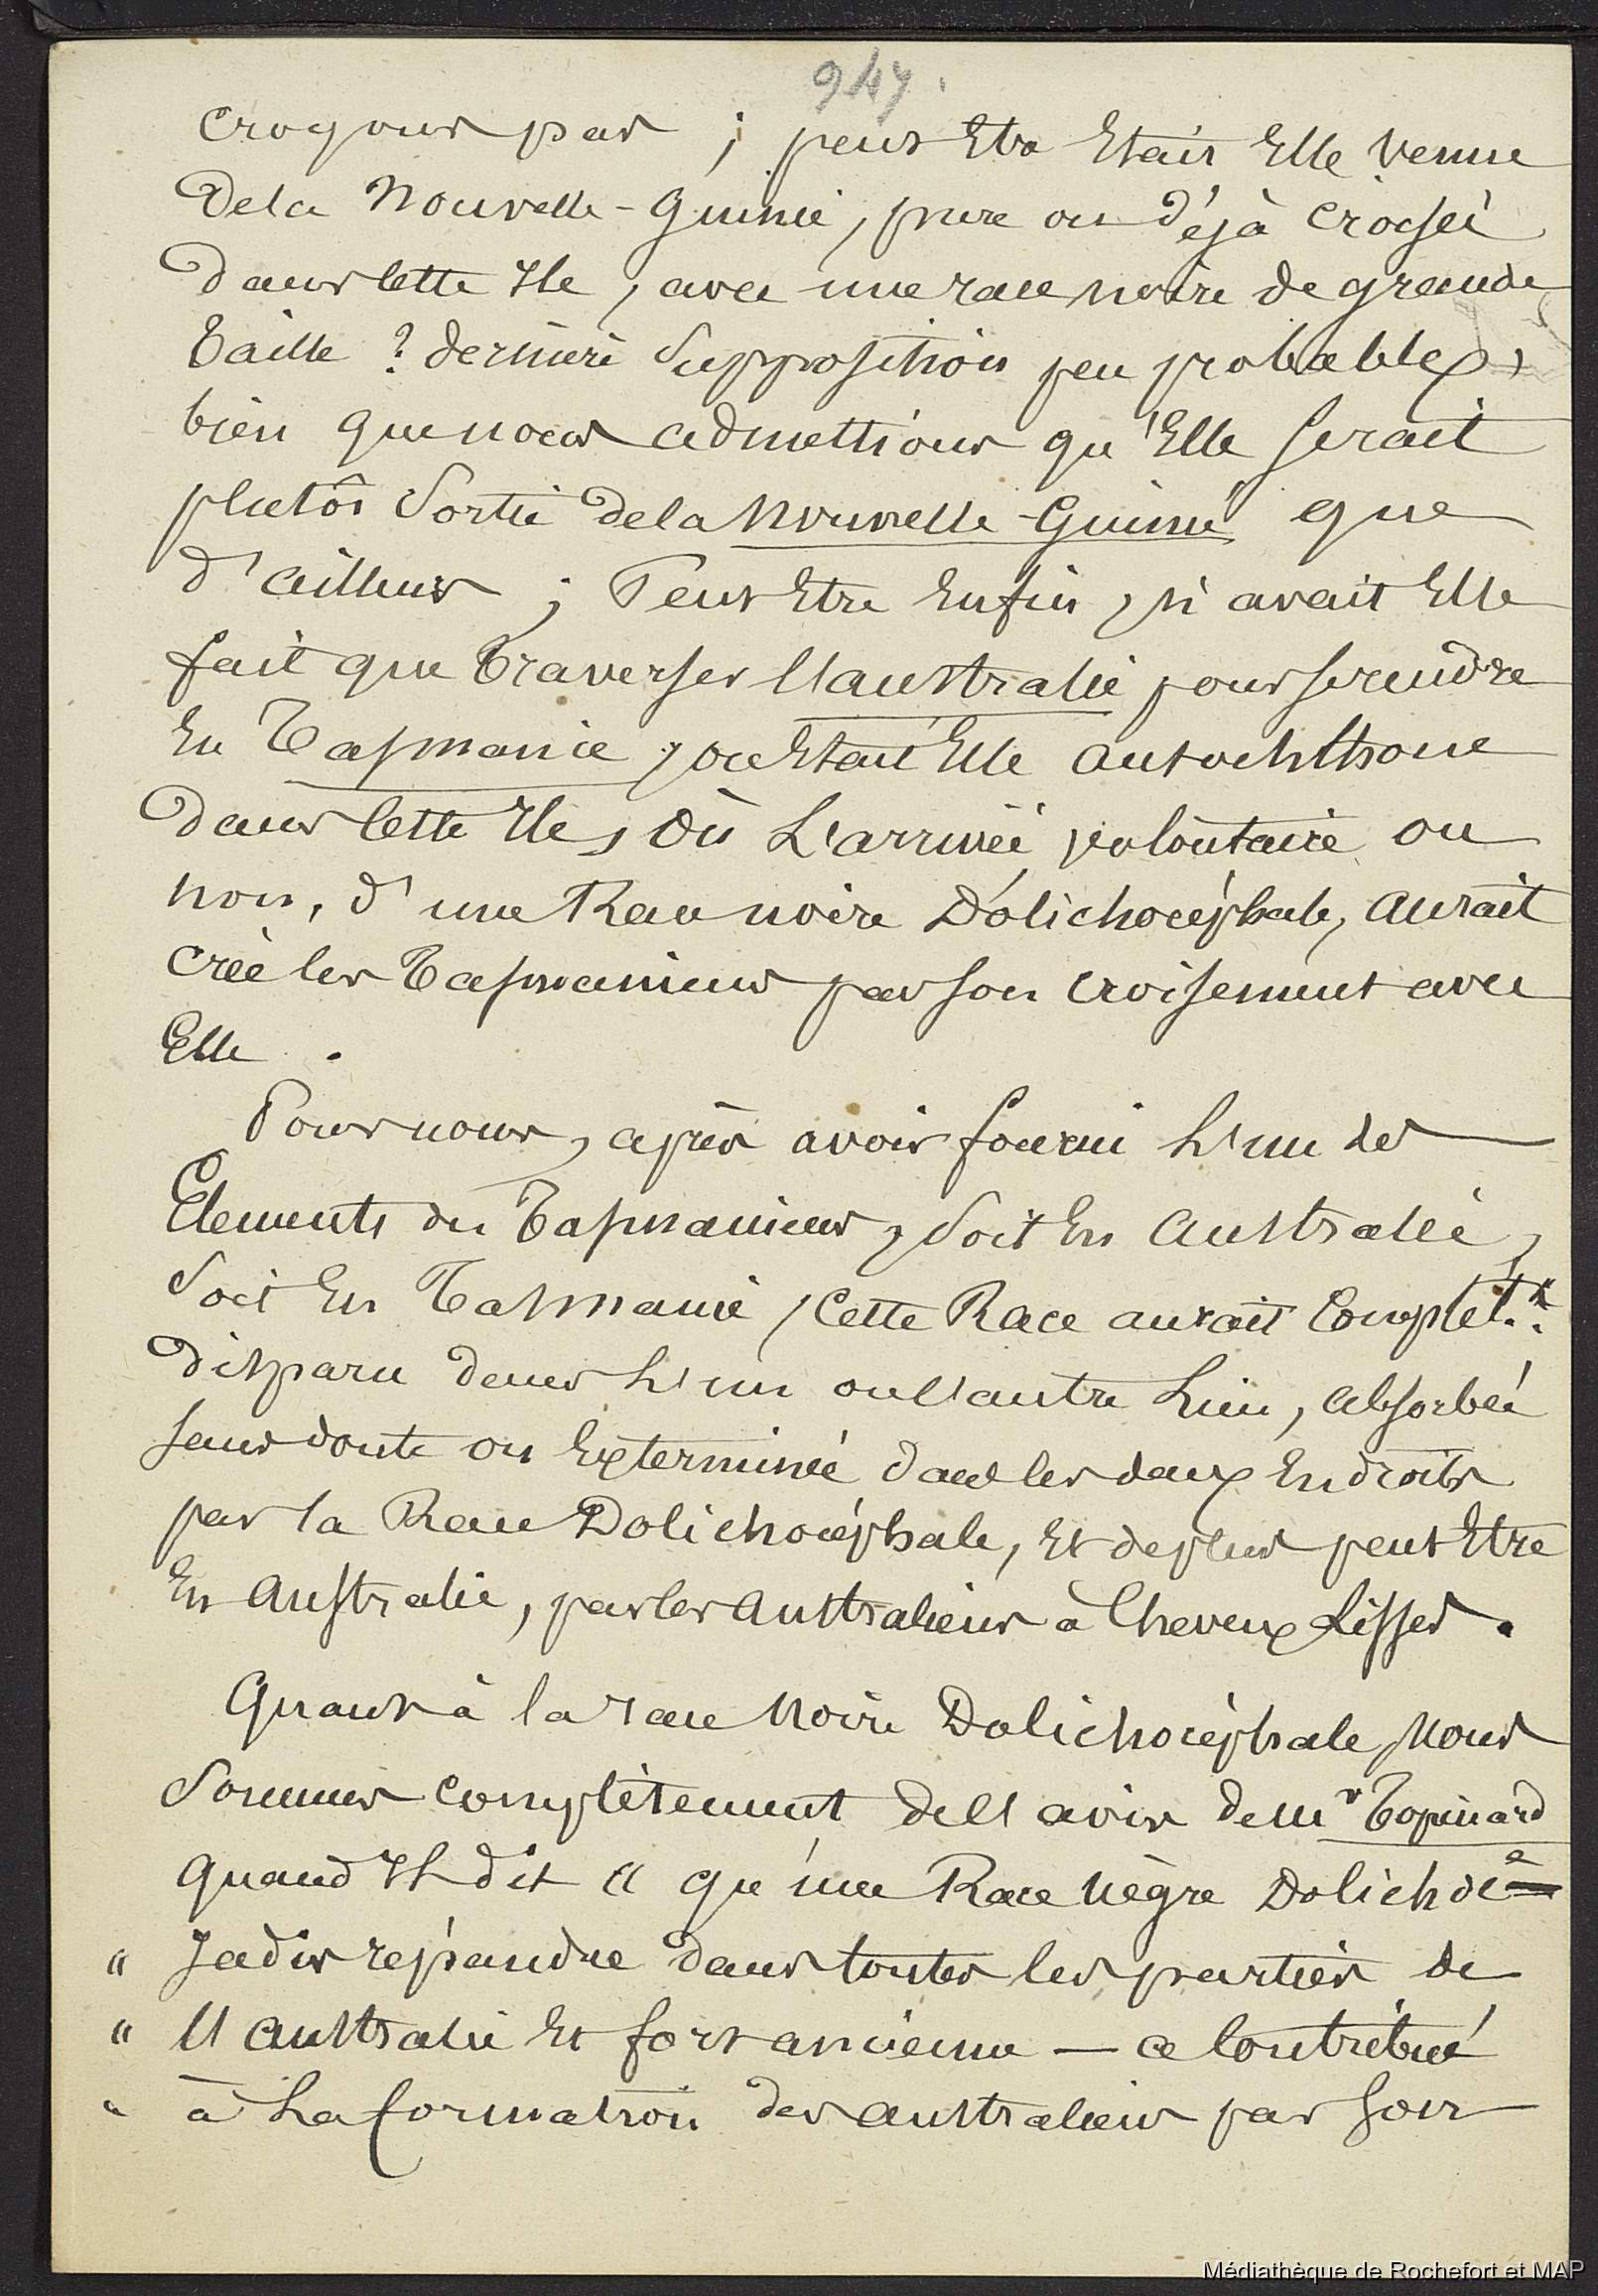 947.
croyons pas ; peut Etre Etait Elle venue
De la Nouvelle-Guinée, pure ou déjà croisée
dans cette Ile, avec une race noire de grande
Taille ? dernière supposition peu probable,
bien que nous admettions qu'Elle serait
plutôt sortie de la Nouvelle-Guinée que
d'ailleurs ; Peut Etre Enfin, n'avait Elle
fait que Traverser l'australie pour se rendre
En Tasmanie, ou Etait Elle autochthone
dans cette Ile, Où L'arrivée volontaire ou
non, d'une Race noire Dolichocéphale, aurait
créé les Tasmaniens par son croisement avec
Elle.
Pour nous, après avoir fourni L'un des
Elements du Tasmanien, soit En Australie,
soit En Tasmanie, Cette Race aurait Complet.t
disparu dans L'un ou l'autre Lieu, absorbée
sans doute ou Exterminée dans les deux Endroits
par la Race Dolichocéphale, Et de plus peut Etre
En Australie, par les Australiens à Cheveux Lisses.
Quant à la race Noire Dolichocéphale, Nous
Sommes complètement de l'avis de Mr Topinard
quand Il dit " qu'une Race nègre Dolichoce
" Jadis répandue dans toutes les parties de
" l'Australie Et fort ancienne — a Contribué
" à La formation des australiens par son
Médiathèque de Rochefort et MAP